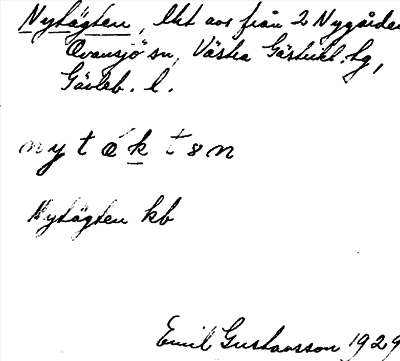 Nytägten, lht avs från 2 Nygården
Ovansjö sn, Västra Gästrikl. tg,
Gävleb. l.
nytäktən
Nytägten kb
Emil Gustavsson 1929